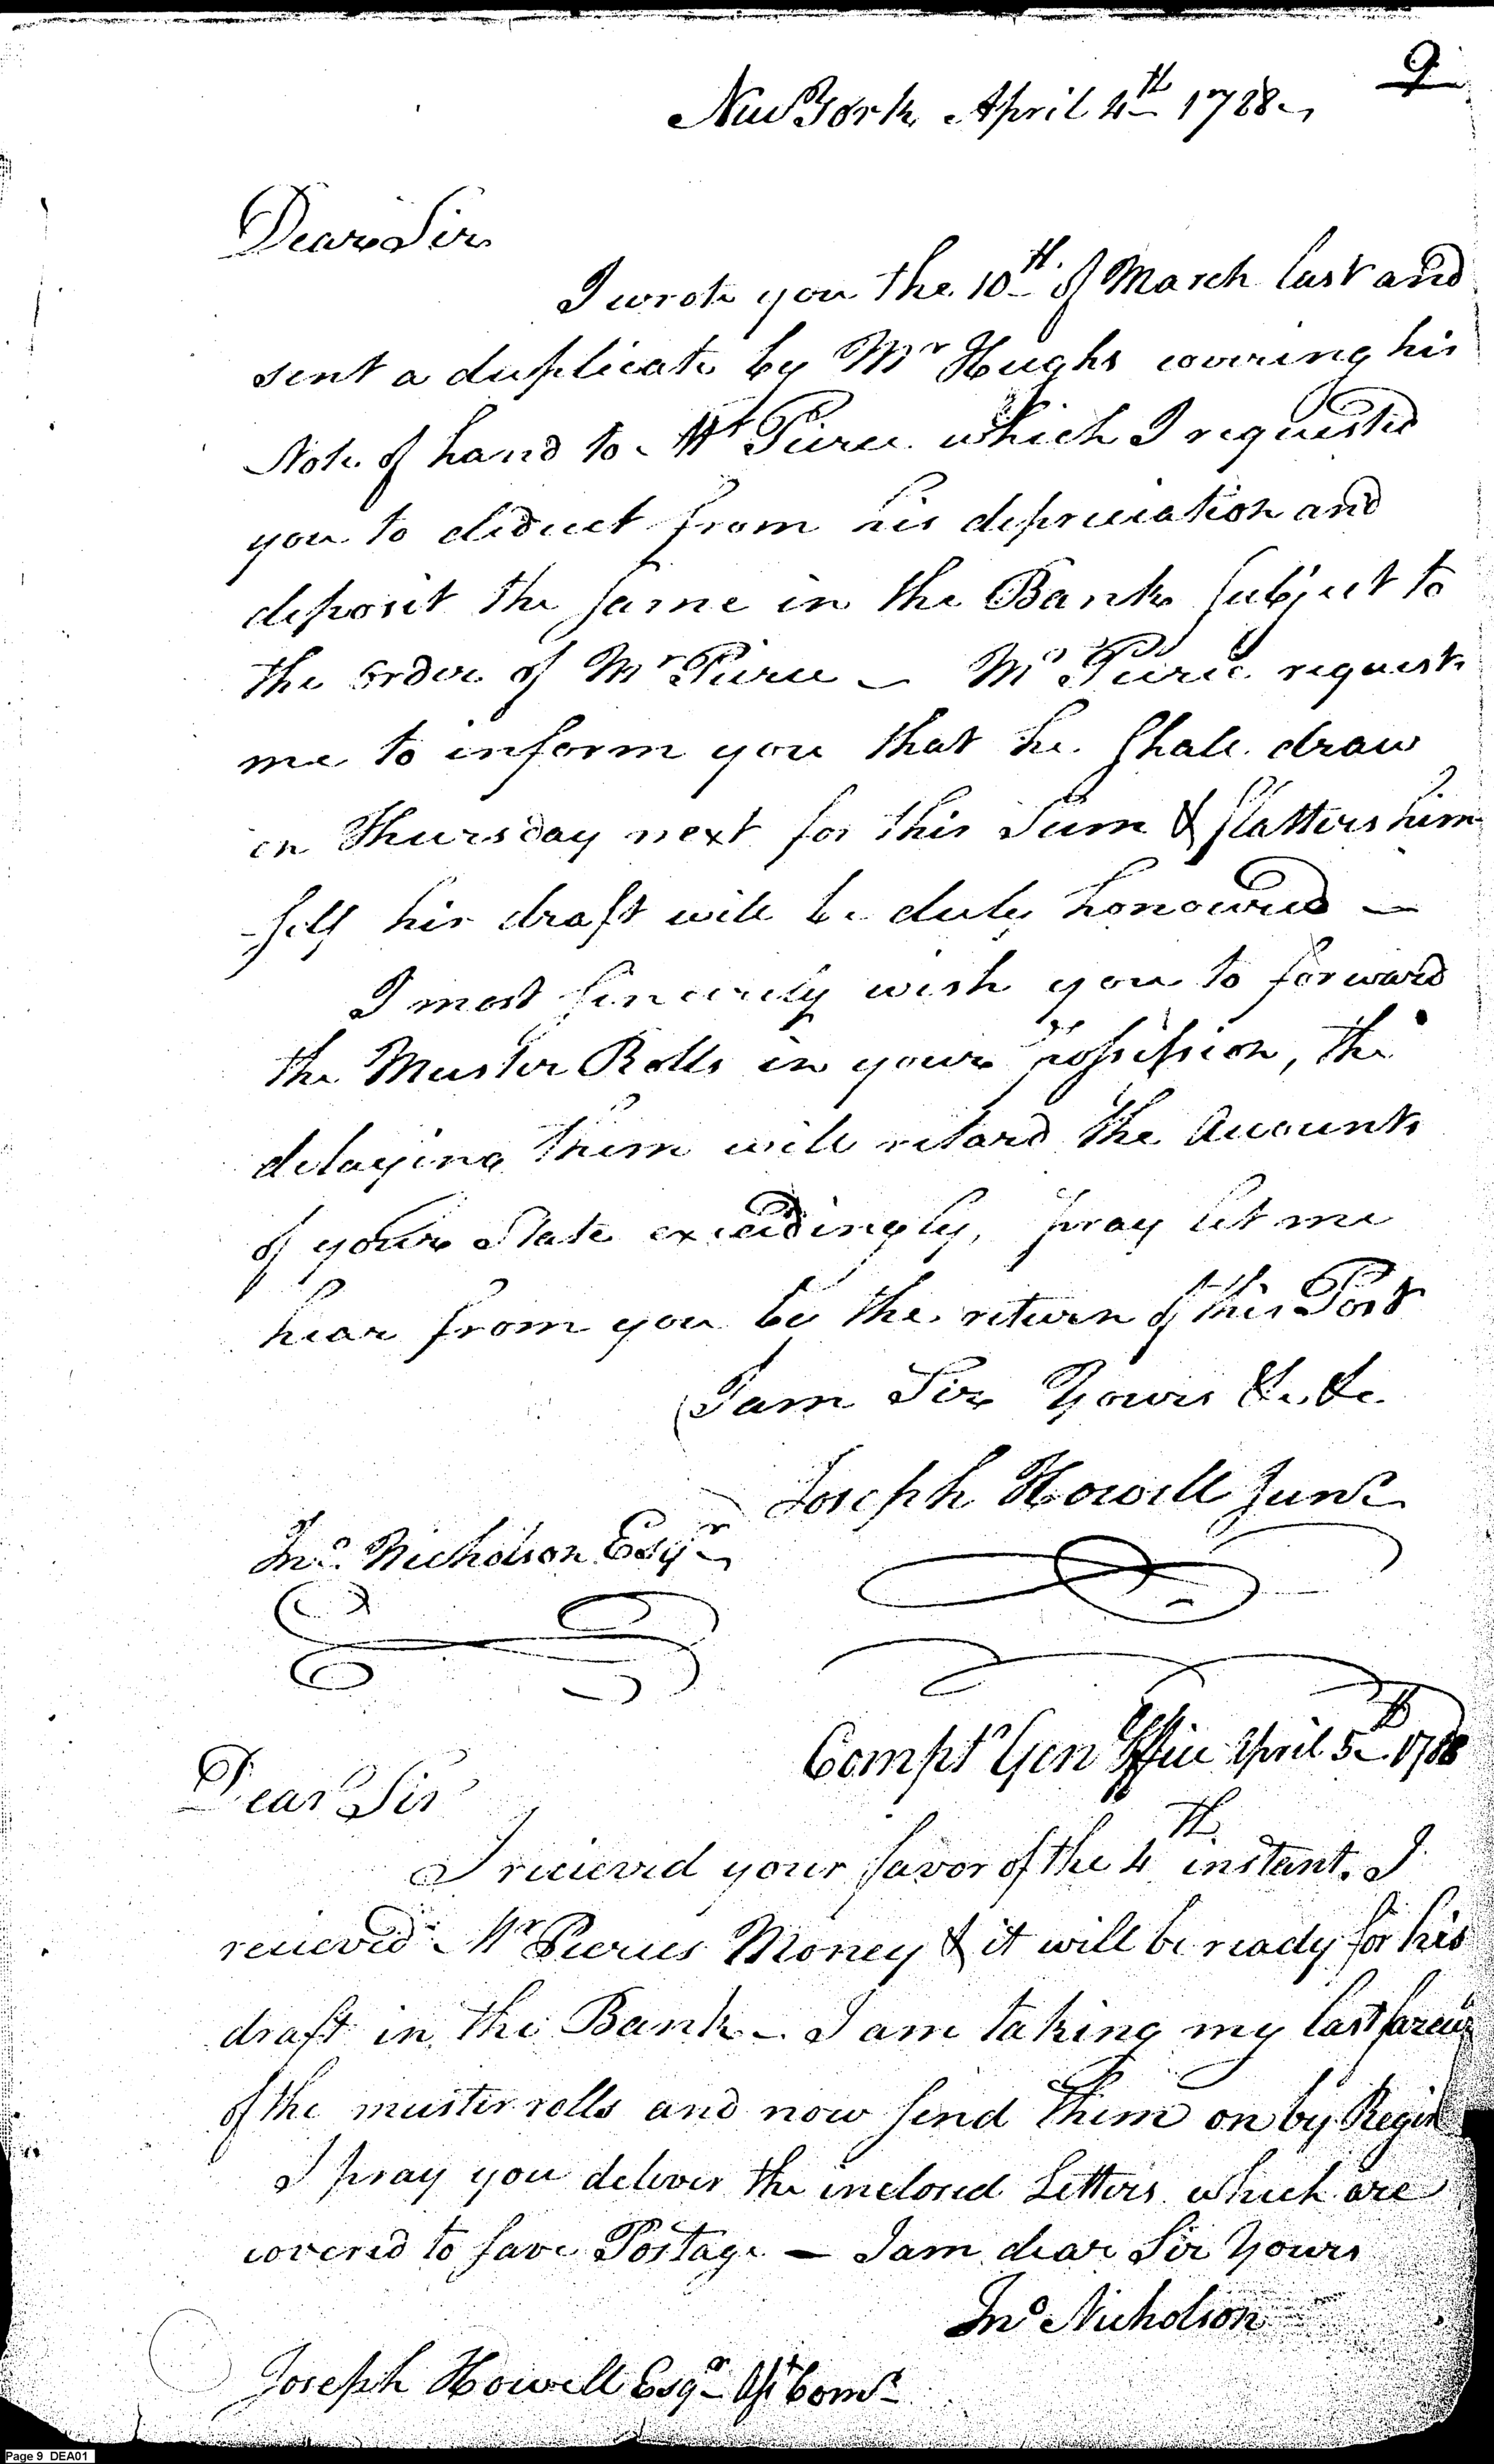 9
New York April 4th 1788
Dear Sir
I wrote you the 10th of March last and
sent a duplicate by Mr Hughs covering his
Note of hand to Mr Pierce which I requested
you to deduct from his depreciation and
deposit the same in the Bank subject to
the order of Mr Pierce — Mr Pierce requests
me to inform you that he shall draw
on Thursday next for this Sum & flatters him
-self his draft will be duly honoured —
I most sincerely wish you to forward
the Muster Rolls in your possession, the
delaying them will retard the Accounts
of your State exceedingly, pray let me
hear from you by the return of this Post
I am Sir Yours &c. &c.
Joseph Howell Junr
Jno. Nicholson Esqr
Compt Gen Office April 5th 1788
Dear Sir
I recieved your favor of the 4th instant. I
recieved Mr Pierces Money & it will be ready for his
draft in the Bank — I am taking my last
of the muster rolls and now send them on by
I pray you deliver the inclosed Letters which are
covered to save Postage — I am dear Sir Yours
Jno Nicholson
Joseph Howell Esqr Asst Comr
Page 9 DEA01